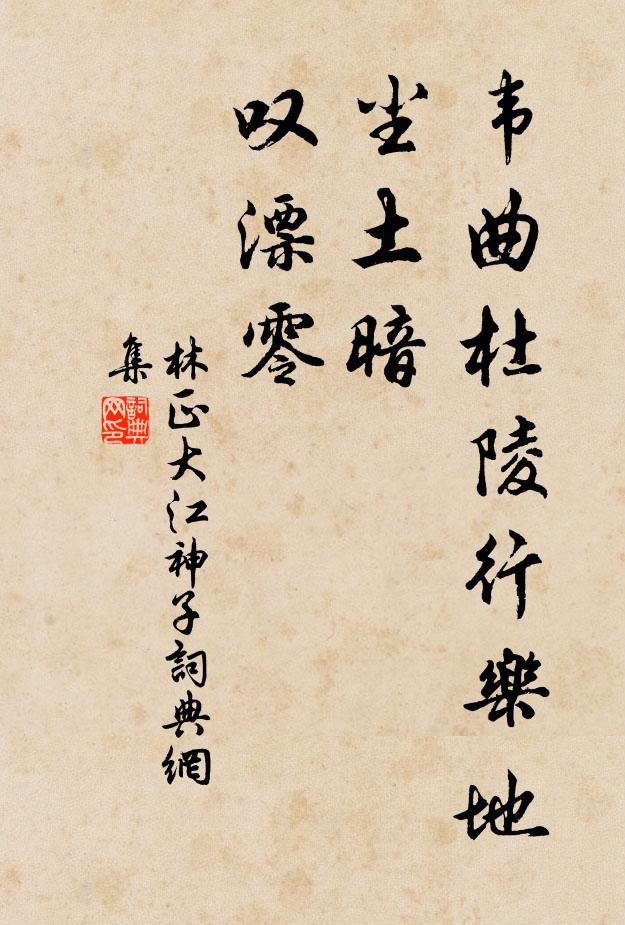 韦曲杜陵行樂地
尘土暗
叹漂零
林正大江神子詞典網
集
詞典
网印